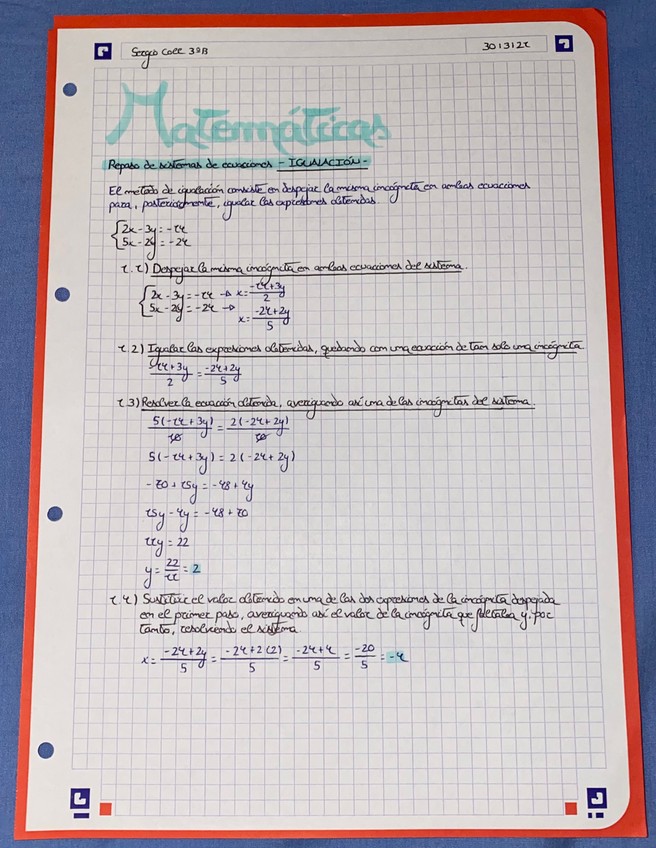 Sergio 3ºB 30/3/21
Matemáticas
Repaso de sistemas de ecuaciones - IGUALACIÓN -
El método de igualación consiste en despejar la misma incógnita en ambas ecuaciones
para, posteriormente, igualar las expresiones obtenidas.
2x - 3y = -14
5x - 2y = -24
1.1) Despejar la misma incógnita en ambas ecuaciones del sistema.
2x - 3y = -14 → x = -14+3y / 2
5x - 2y = -24 → x = -24+2y / 5
1.2) Igualar las expresiones obtenidas, quedando con una ecuación de tan solo una incógnita
-14+3y / 2 = -24+2y / 5
1.3) Resolver la ecuación obtenida, averiguando así una de las incógnitas del sistema.
5(-14+3y) / 10 = 2(-24+2y) / 10
5(-14+3y) = 2(-24+2y)
-70 + 15y = -48 + 4y
15y - 4y = -48 + 70
11y = 22
y = 22 / 11 = 2
1.4) Sustituir el valor obtenido en una de las dos expresiones de la incógnita despejada
en el primer paso, averiguando así el valor de la incógnita que faltaba y, por
tanto, resolviendo el sistema.
x = -24+2y / 5 = -24+2(2) / 5 = -24+4 / 5 = -20 / 5 = -4